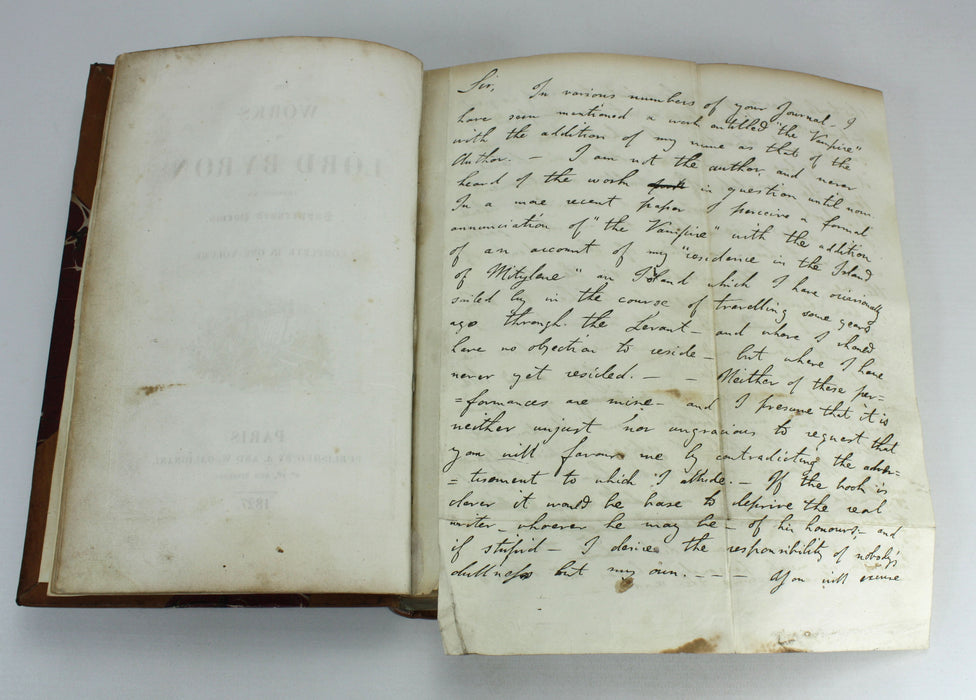 WORKS
LORD BYRON
SUPPRESSED POEMS
COMPLETE IN ONE VOLUME
PARIS
PUBLISHED BY A. AND W. GALIGNANI,
1827
Sir, In various numbers of your Journal - I
have seen mentioned a work entitled "the Vampire"
with the addition of my name as that of the
Author. - I am not the author and never
heard of the work in question until now.
In a more recent paper I perceive a formal
annunciation of "the Vampire" with the addition
of an account of my "residence in the Island
of Mitylane" an Island which I have occasionally
sailed by in the course of travelling some years
ago through the Levant - and where I should
have no objection to reside - but where I have
never yet resided. - - Neither of these per=
=formances are mine - and I presume that it is
neither unjust nor ungracious to request that
you will favour me by contradicting the adver=
=tisement to which I allude. - If the book is
clever it would be base to deprive the real
writer - whoever he may be - of his honours; - and
if stupid - I desire the responsibility of nobody's
dullness but my own. - - - You will excuse